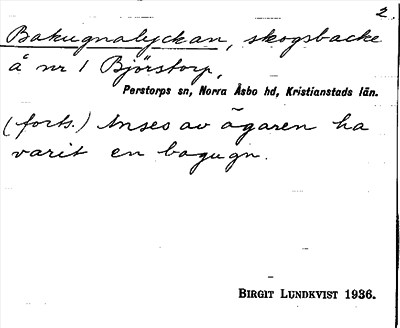 2.
Bakugnalyckan, skogsbacke
å nr 1 Björstorp,
Perstorps sn, Norra Åsbo hd, Kristianstads län.
(forts.) Anses av ägaren ha
varit en bagugn.
BIRGIT LUNDKVIST 1936.